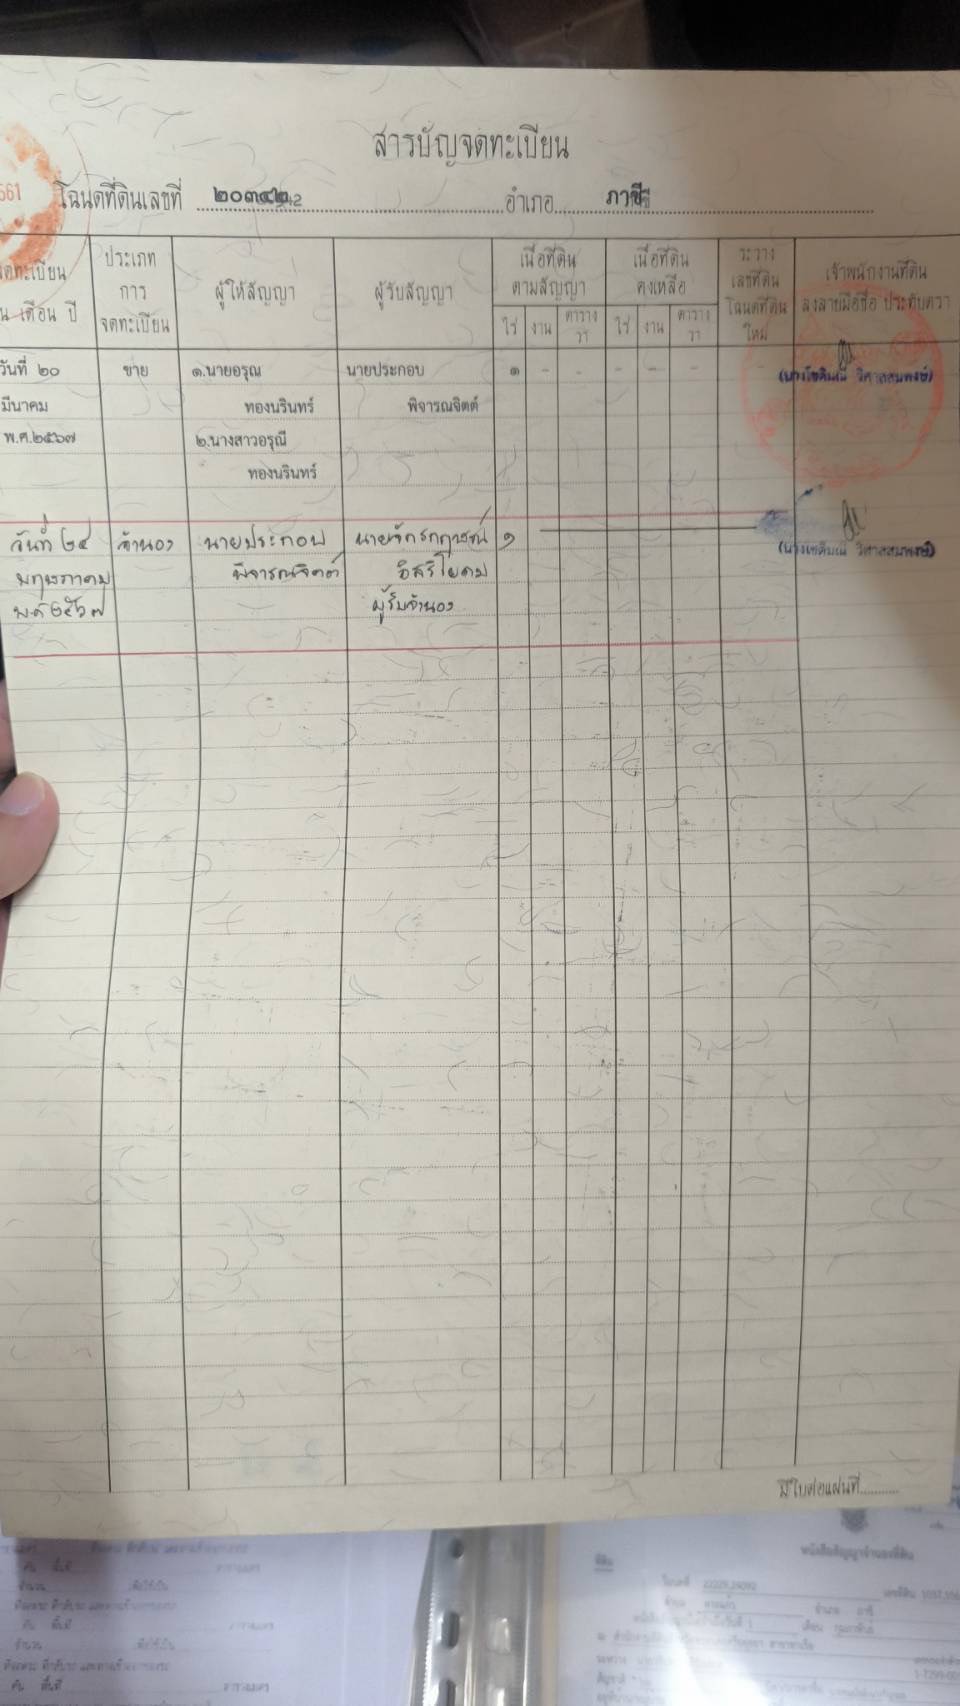 สารบัญจดทะเบียน
561 โฉนดที่ดินเลขที่ ๒๐๓๔๒ อำเภอ ภาชี
จดทะเบียน
น เดือน ปี
ประเภท
การ
จดทะเบียน
ผู้ให้สัญญา
ผู้รับสัญญา
เนื้อที่ดิน
ตามสัญญา
ไร่ งาน ตาราง
วา
เนื้อที่ดิน
คงเหลือ
ไร่ งาน ตาราง
วา
ระวาง
เลขที่ดิน
โฉนดที่ดิน
ใหม่
เจ้าพนักงานที่ดิน
ลงลายมือชื่อ ประทับตรา
วันที่ ๒๐ ขาย ๑.นายอรุณ นายประกอบ ๑ - - - - -
(นางโชติมณี วิศาลสมพงษ์)
มีนาคม ทองนรินทร์ พิจารณจิตต์
พ.ศ.๒๕๖๗ ๒.นางสาวอรุณี
ทองนรินทร์
วันที่ ๒๔ จำนอง นายประกอบ นายจักรกฤษณ์ ๑
(นางโชติมณี วิศาลสมพงษ์)
พฤษภาคม พิจารณจิตต์ อิสริโยดม
พ.ศ ๒๕๖๗ ผู้รับจำนอง
มีใบต่อแผ่นที่
หนังสือสัญญาจำนองที่ดิน
ที่ดิน